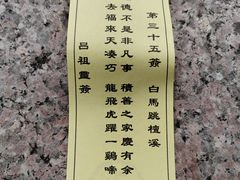 第三十五簽 白馬跳檀溪
德不是非凡事 積善之家慶有余
去福來天湊巧 龍飛虎躍一鷄啼
呂祖靈簽